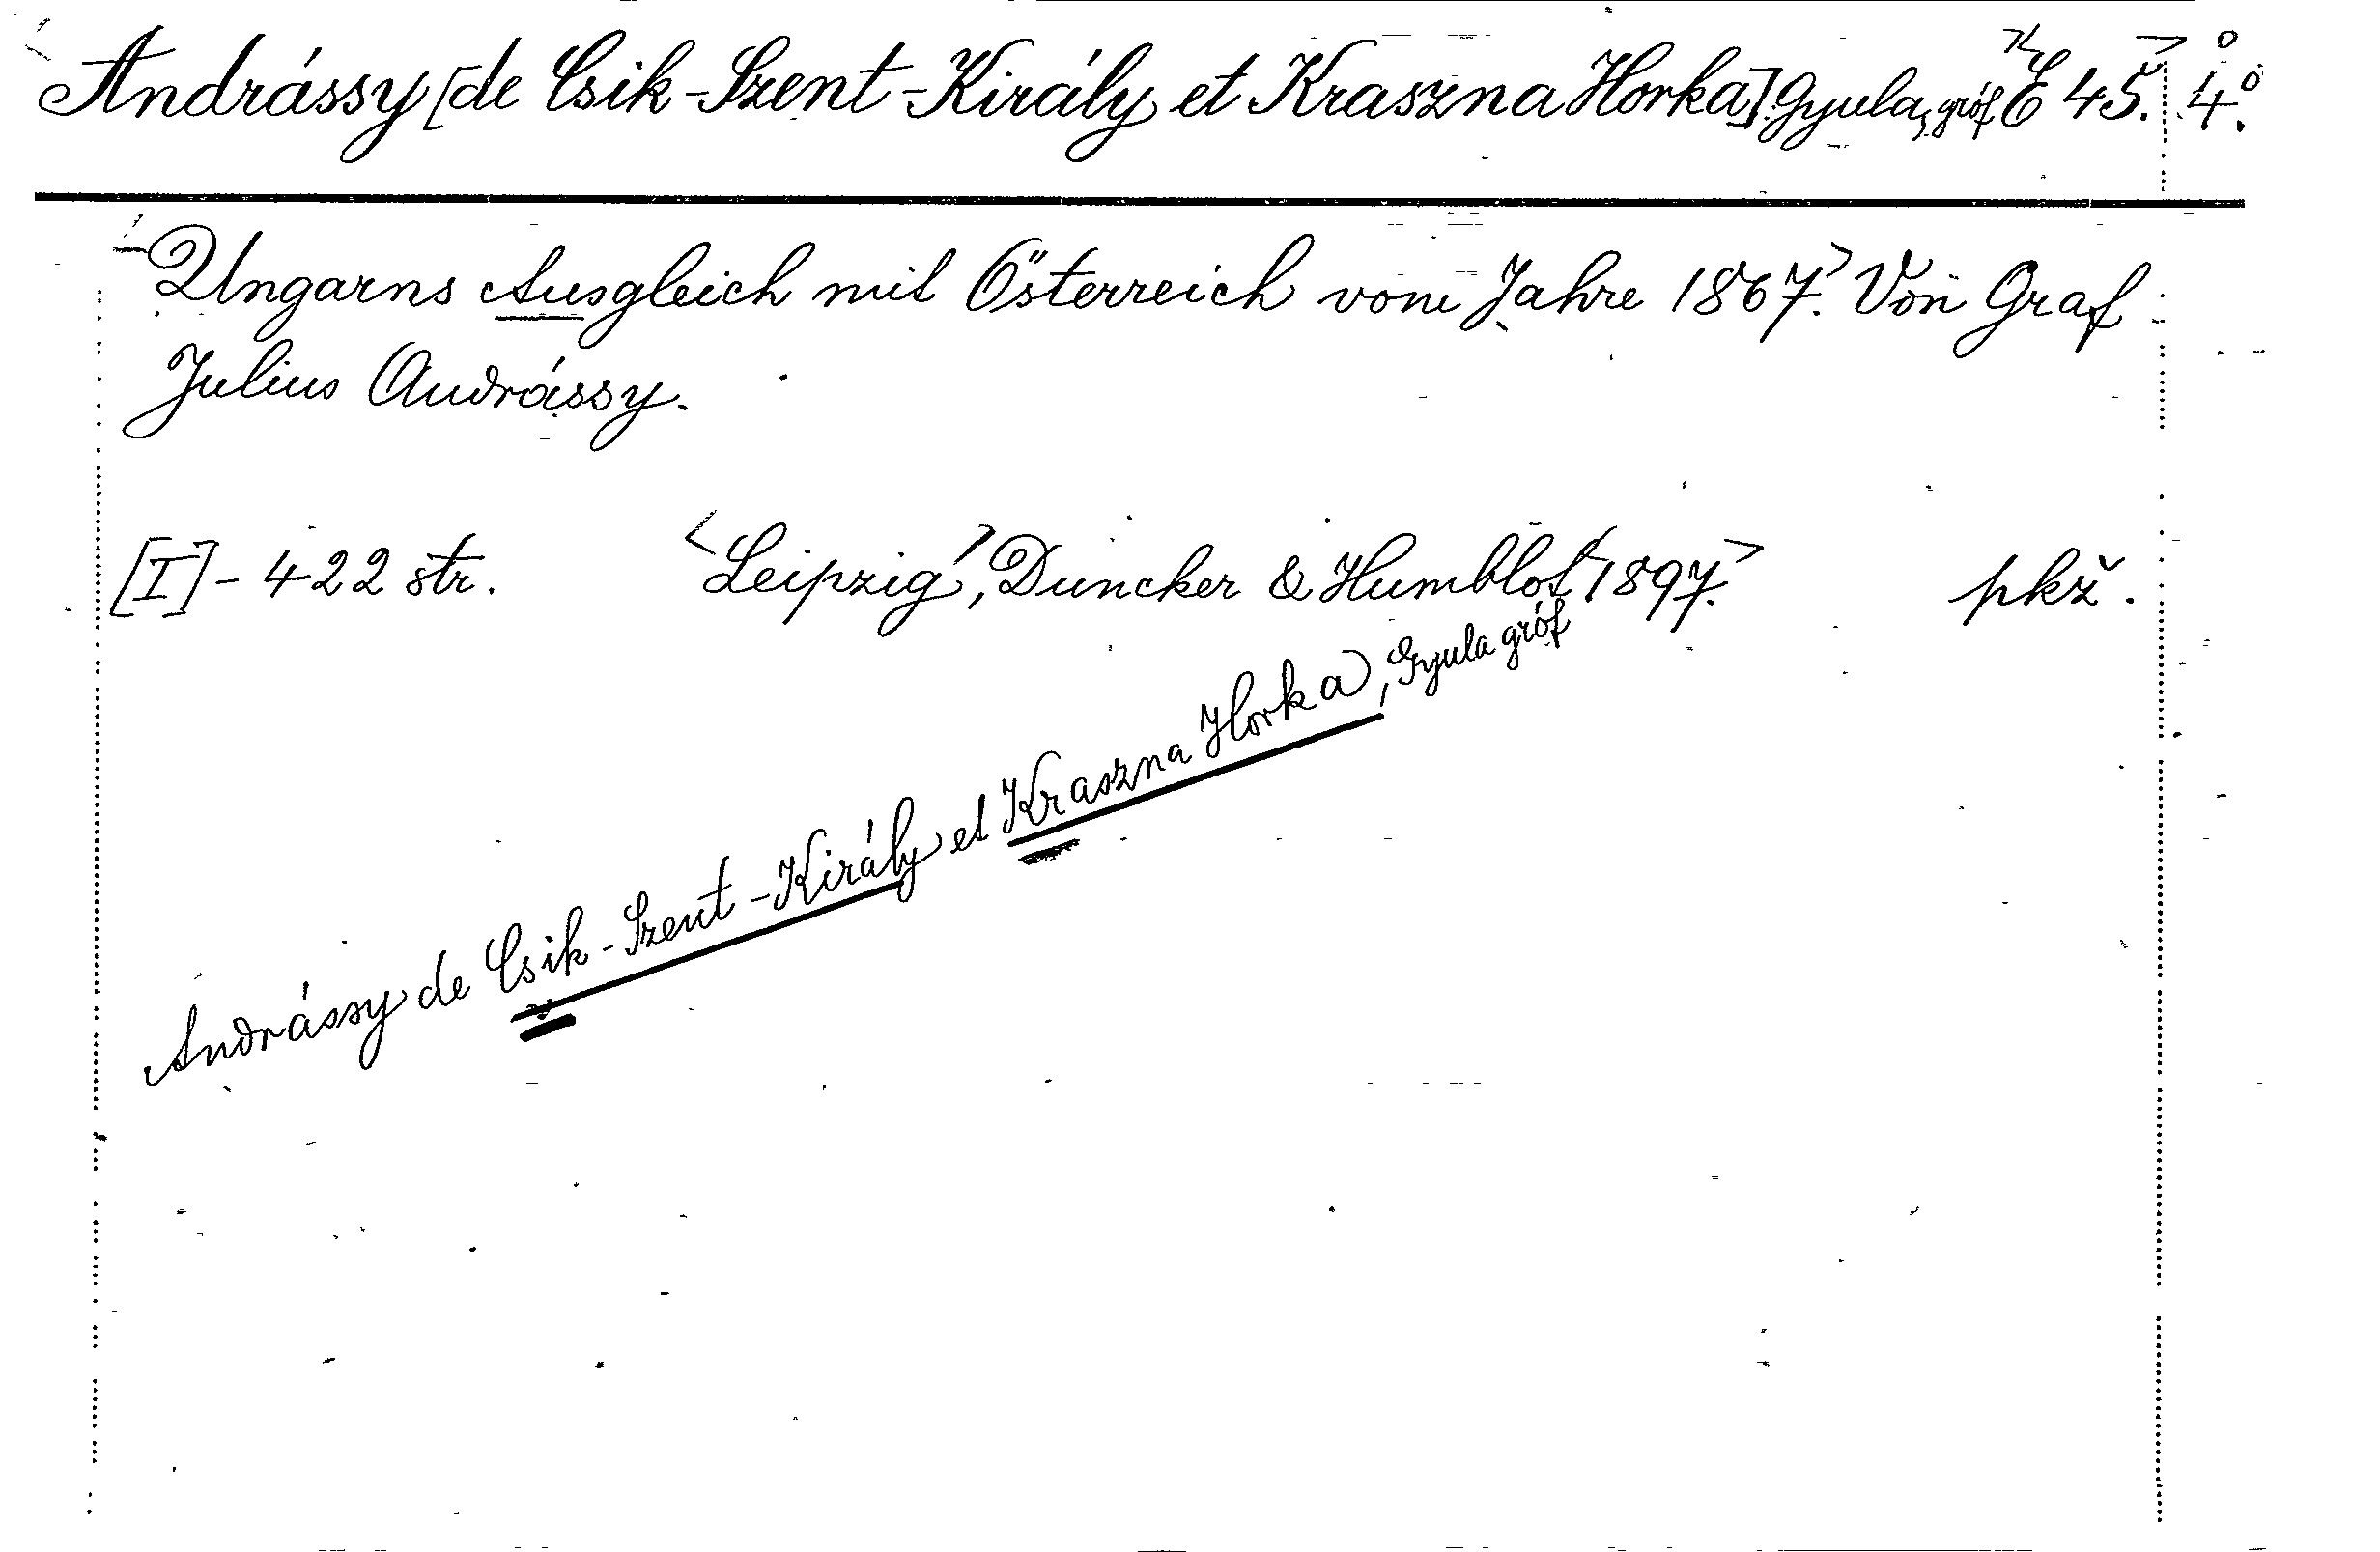 Andrássy [de Csik-Szent-Király et Kraszna Horka] Gyula, gróf E 45. 4°.
Ungarns Ausgleich mit Österreich vom Jahre 1867. Von Graf
Julius Andrássy.
[I] - 422 str. <Leipzig>, Duncker & Humblot <1897.> pkž.
Andrássy de Csik-Szent-Király et Kraszna Horka, Gyula gróf